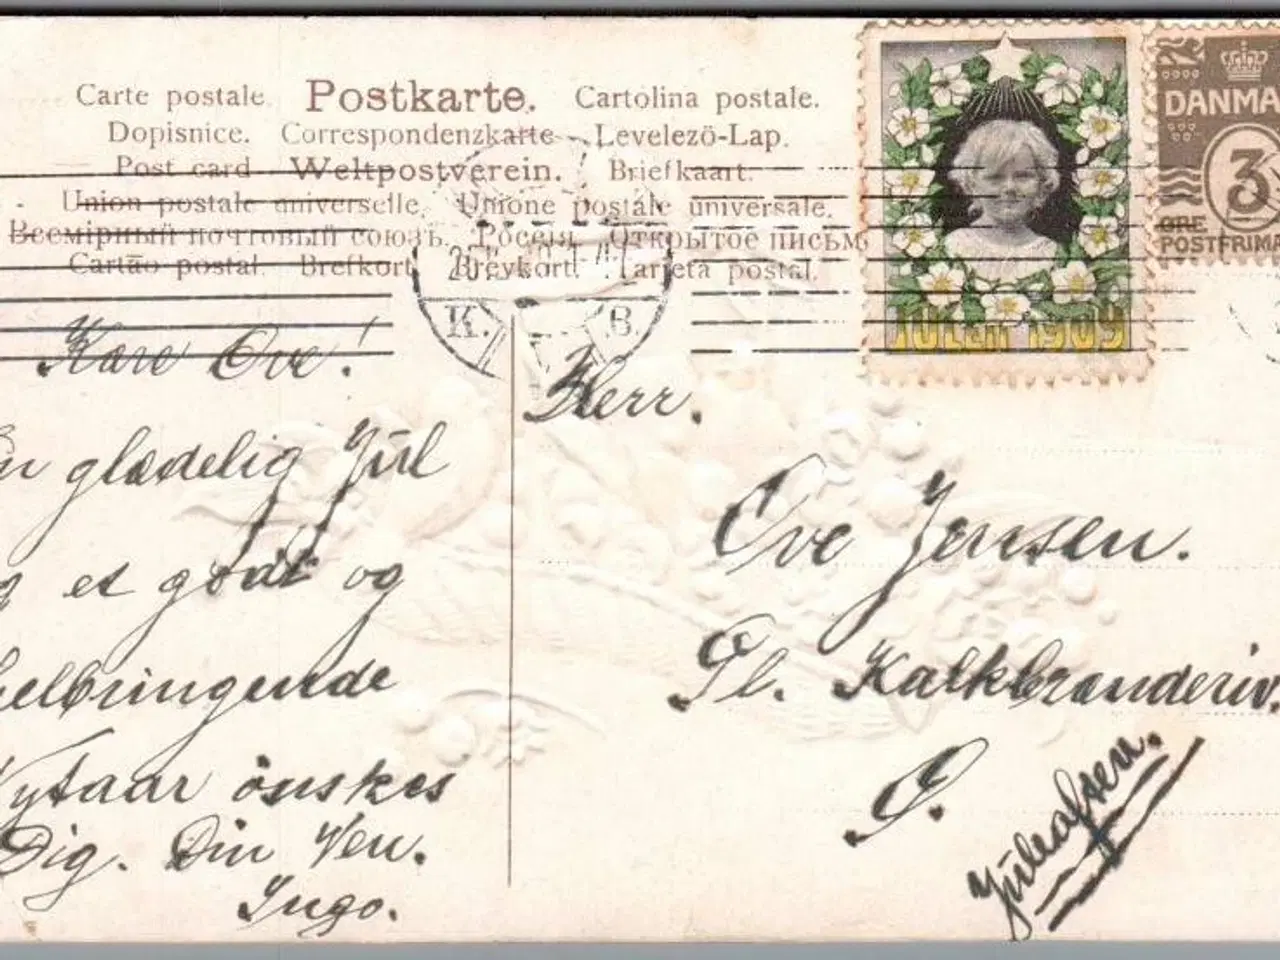 Carte postale. Postkarte. Cartolina postale.
Dopisnice. Correspondenzkarte Levelezö-Lap.
Post card Weltpostverein. Briefkaart.
Union postale universelle. Unione postale universale.
Всемірный почтовый союзъ. Россія. Открытое письмо
Cartão postal. Brefkort Brevkort. Tarjeta postal.
JULEN 1909
DANMA
3
ØRE
POSTFRIMA
K. B.
Kære Ove!
En glædelig Jul
og et godt og
helbringende
Nytaar önskes
Dig. Din Ven.
Ingo.
Herr.
Ove Jensen.
Gl. Kalkbrænderiv.
Ø.
Juleaften.